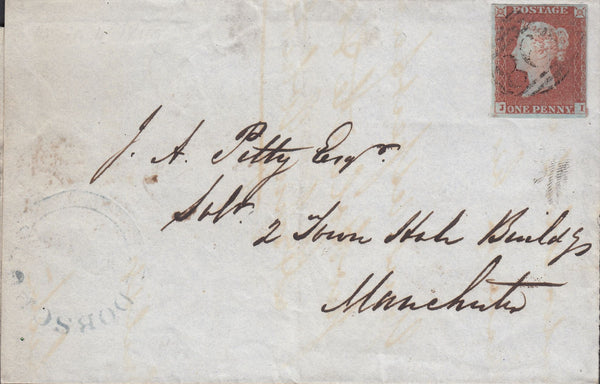 POSTAGE
ONE PENNY
J. A. Pitty Esqr.
Solr.
2 Town Hall Buildgs
Manchester